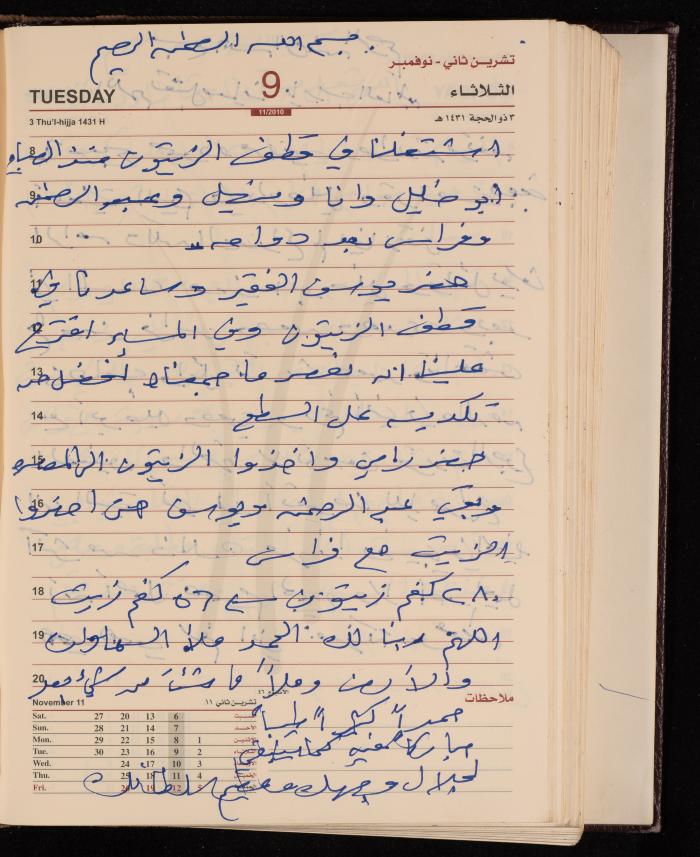 بسم الله الرحمن الرحيم
تشرين ثاني - نوفمبر
TUESDAY 9 الثلاثاء
11/2010
3 Thu'l-hijja 1431 H ٣ ذو الحجة ١٤٣١ هـ
8 اشتغلنا في قطف الزيتون منذ الصباح
9 أبو خليل وانا و وعبد الرحمن
10 وفراس بعد دوامه
11 حضر يونس الفقير وساعدنا في
12 قطف الزيتون وفي المساء اقترح
13 علينا انه نعصر ما جمعناه أفضل من
14 تكديسه على السطح
15 حضر رامي واخذوا الزيتون الى المعصره
16 وبقي عبد الرحمن ويونس حتى احضروا
17 الزيت مع فراس
18 ٢٨٠ كغم زيتون كغم زيت
19 اللهم ربنا لك الحمد ملأ السماوات
20 والأرض وملأ ما شئت من شيء بعد
ملاحظات
حمداً كثيراً طيباً
مباركاً فيه كما ينبغي
لجلال وجهك وعظيم سلطانك
November 11 تشرين ثاني ١١
Sat. 27 20 13 6 السبت
Sun. 28 21 14 7 الاحد
Mon. 29 22 15 8 1 الاثنين
Tue. 30 23 16 9 2
Wed. 24 17 10 3
Thu. 25 18 11 4
Fri. 26 19 12 5